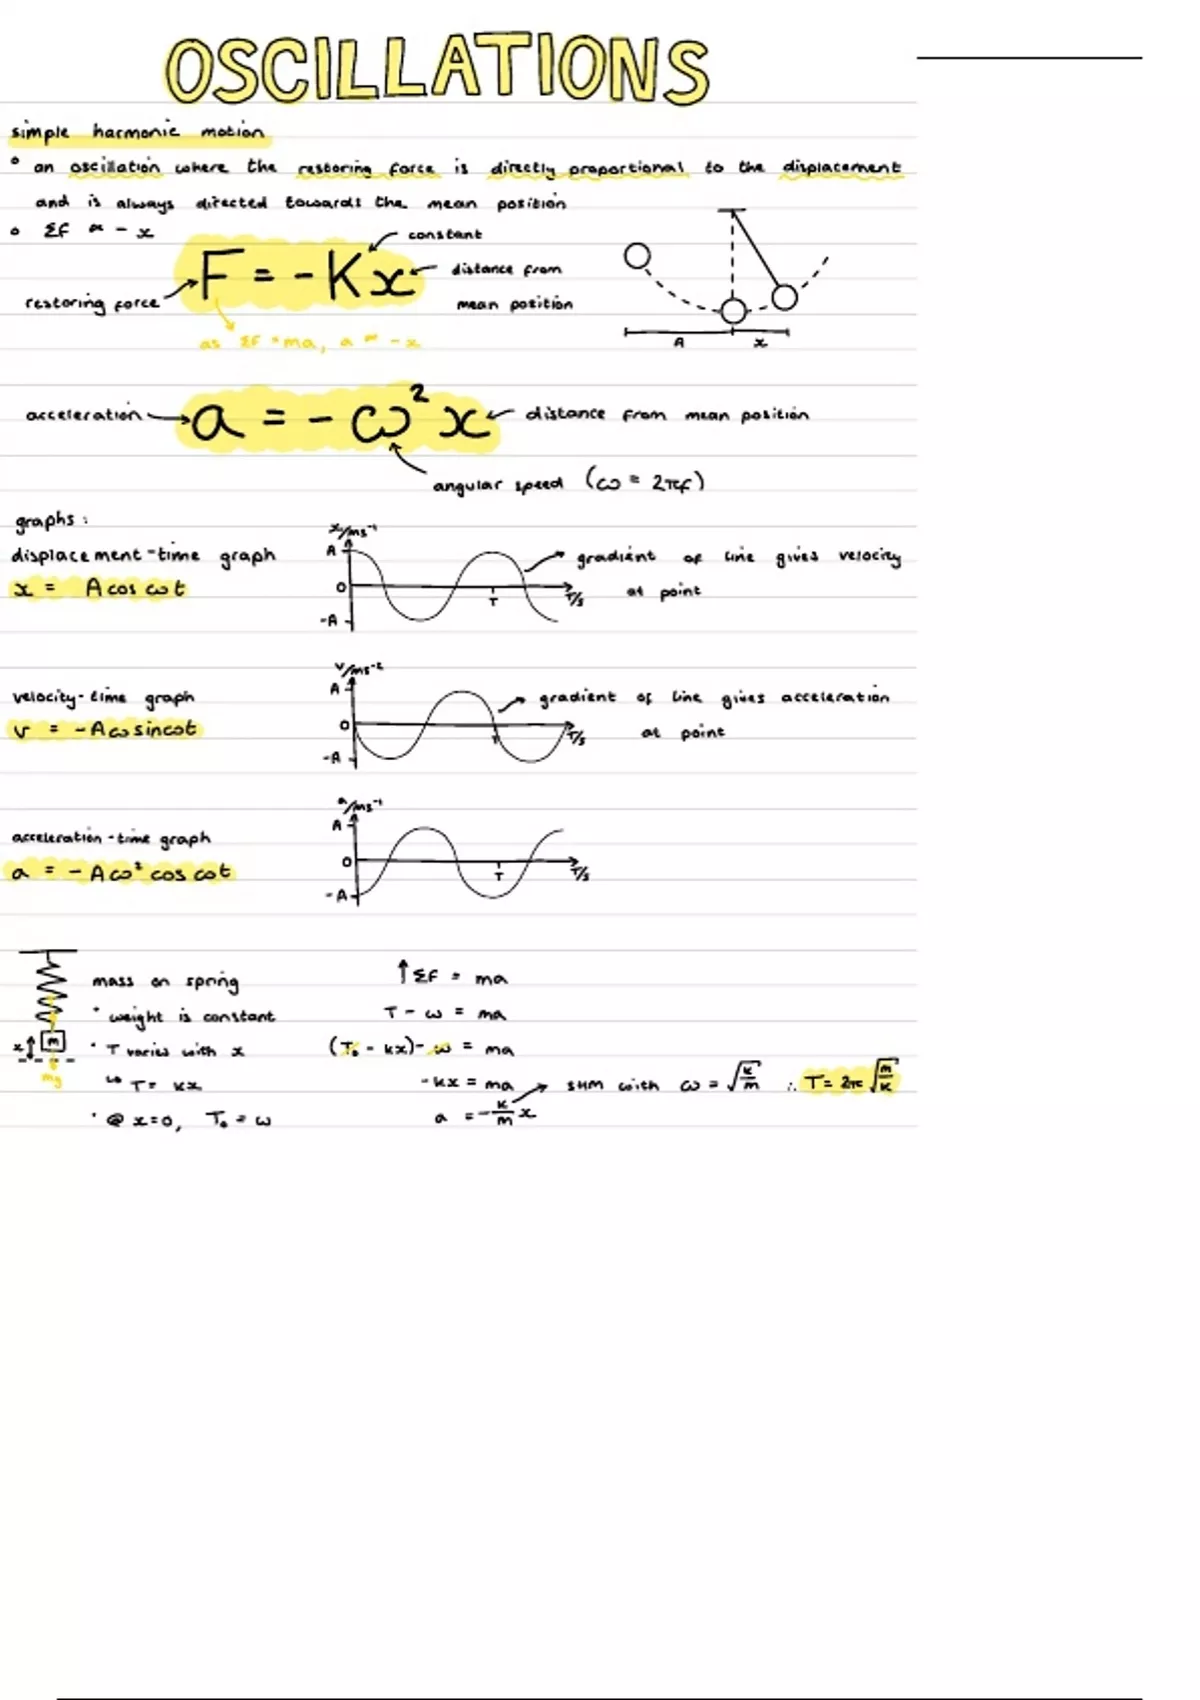 OSCILLATIONS
simple harmonic motion
° an oscillation where the restoring force is directly proportional to the displacement
and is always directed towards the mean position
° ΣF ∝ - x
constant
F = - Kx
distance from
mean position
restoring force
as ΣF = ma, a ∝ - x
A x
acceleration a = - ω² x distance from mean position
angular speed (ω = 2πf)
graphs:
displacement-time graph
x = A cos ωt
x/ms⁻¹
A
O
-A
T
T/s
gradient of line gives velocity
at point
velocity-time graph
v = -Aω sinωt
v/ms⁻²
A
O
-A
T
T/s
gradient of line gives acceleration
at point
acceleration-time graph
a = - Aω² cos ωt
a/ms⁻¹
A
O
-A
T
T/s
x m
mg
mass on spring
· weight is constant
· T varies with x
↳ T = kx
· @ x=0, T₀ = ω
↑ΣF = ma
T - ω = ma
(T₀ - kx) - ω = ma
-kx = ma → SHM with ω = √k/m ∴ T = 2π √m/k
a = - k/m x